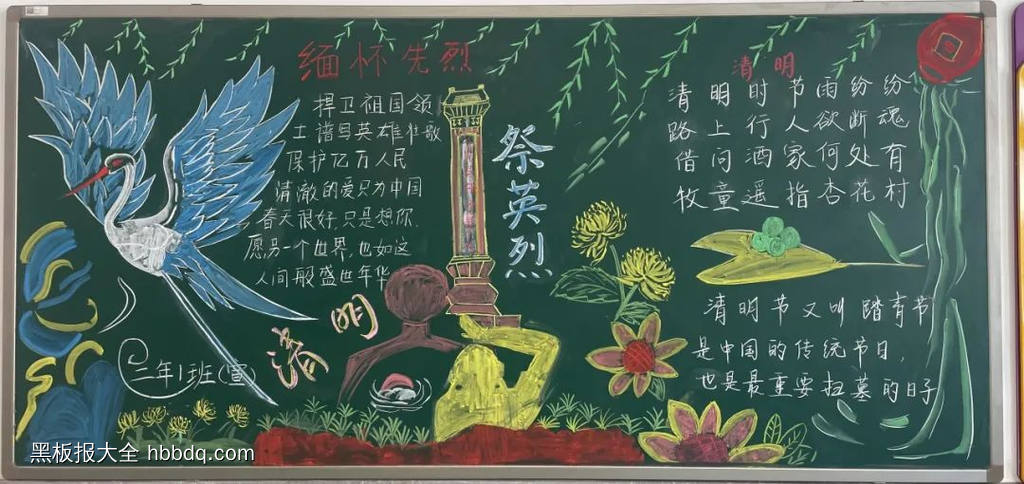 缅怀先烈
捍卫祖国领
土谱写英雄壮歌
保护亿万人民
清澈的爱只为中国
春天很好,只是想你.
愿另一个世界,也如这
人间般盛世年华
祭英烈
清明
三年1班(宣)
清明
清明时节雨纷纷
路上行人欲断魂
借问酒家何处有
牧童遥指杏花村
清明节又叫踏青节
是中国的传统节日,
也是最重要扫墓的日子
黑板报大全 hbbdq.com